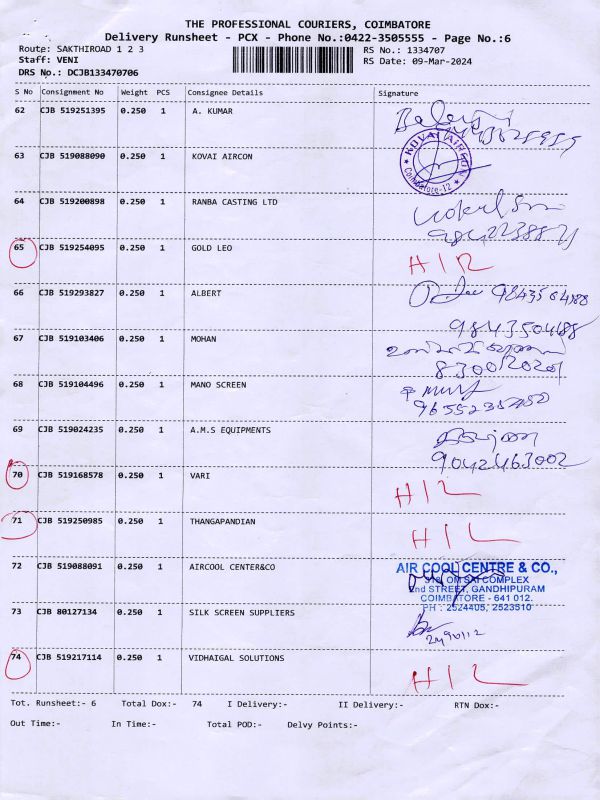 THE PROFESSIONAL COURIERS, COIMBATORE
Delivery Runsheet - PCX - Phone No.:0422-3505555 - Page No.:6
Route: SAKTHIROAD 1 2 3 RS No.: 1334707
Staff: VENI RS Date: 09-Mar-2024
DRS No.: DCJB133470706
S No Consignment No Weight PCS Consignee Details Signature
62 CJB 519251395 0.250 1 A. KUMAR
63 CJB 519088090 0.250 1 KOVAI AIRCON KOVAI AIRCON Coimbatore-12
64 CJB 519200898 0.250 1 RANBA CASTING LTD
65 CJB 519254095 0.250 1 GOLD LEO
66 CJB 519293827 0.250 1 ALBERT 9843504188
9843504188
67 CJB 519103406 0.250 1 MOHAN
68 CJB 519104496 0.250 1 MANO SCREEN
69 CJB 519024235 0.250 1 A.M.S EQUIPMENTS
9042463002
70 CJB 519168578 0.250 1 VARI
71 CJB 519250985 0.250 1 THANGAPANDIAN
72 CJB 519088091 0.250 1 AIRCOOL CENTER&CO AIR COOL CENTRE & CO.,
OM SAI COMPLEX
2nd STREET, GANDHIPURAM
COIMBATORE - 641 012.
PH : 2524405, 2523510
73 CJB 80127134 0.250 1 SILK SCREEN SUPPLIERS
74 CJB 519217114 0.250 1 VIDHAIGAL SOLUTIONS
Tot. Runsheet:- 6 Total Dox:- 74 I Delivery:- II Delivery:- RTN Dox:-
Out Time:- In Time:- Total POD:- Delvy Points:-